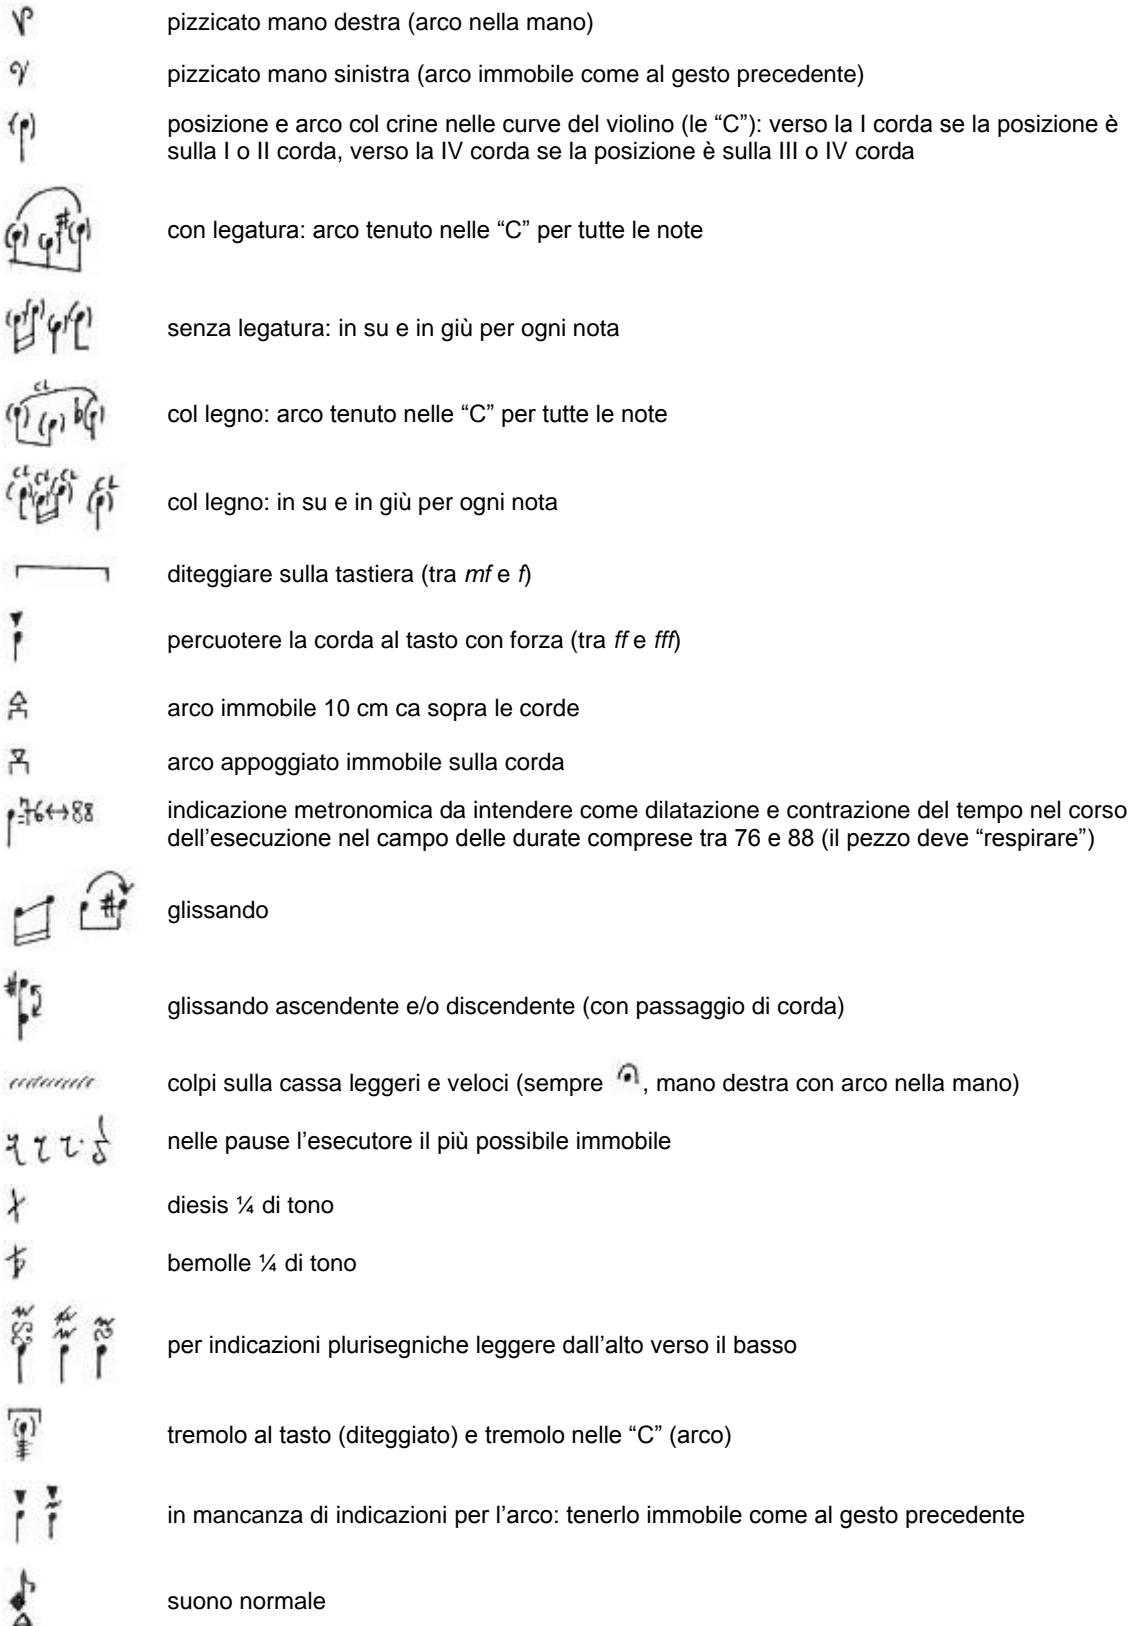 pizzicato mano destra (arco nella mano)
pizzicato mano sinistra (arco immobile come al gesto precedente)
posizione e arco col crine nelle curve del violino (le “C”): verso la I corda se la posizione è
sulla I o II corda, verso la IV corda se la posizione è sulla III o IV corda
con legatura: arco tenuto nelle “C” per tutte le note
senza legatura: in su e in giù per ogni nota
CL
col legno: arco tenuto nelle “C” per tutte le note
CL CL CL CL
col legno: in su e in giù per ogni nota
diteggiare sulla tastiera (tra mf e f)
percuotere la corda al tasto con forza (tra ff e fff)
arco immobile 10 cm ca sopra le corde
arco appoggiato immobile sulla corda
=76↔88 indicazione metronomica da intendere come dilatazione e contrazione del tempo nel corso
dell’esecuzione nel campo delle durate comprese tra 76 e 88 (il pezzo deve “respirare”)
glissando
glissando ascendente e/o discendente (con passaggio di corda)
colpi sulla cassa leggeri e veloci (sempre , mano destra con arco nella mano)
nelle pause l’esecutore il più possibile immobile
diesis ¼ di tono
bemolle ¼ di tono
per indicazioni plurisegniche leggere dall’alto verso il basso
tremolo al tasto (diteggiato) e tremolo nelle “C” (arco)
in mancanza di indicazioni per l’arco: tenerlo immobile come al gesto precedente
suono normale